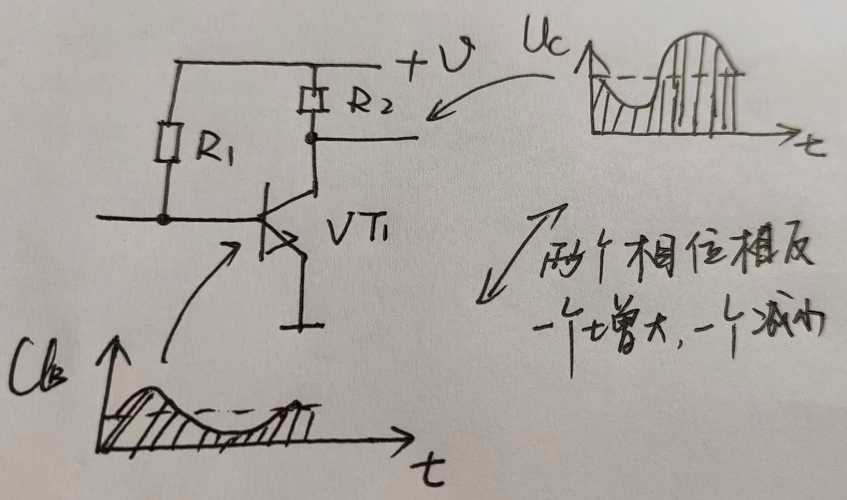 +V
Uc
R2
R1
t
VT1
两个相位相反
一个增大,一个减小
UB
t